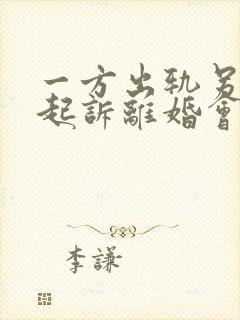 一方出轨另
起訴離婚會
李謙